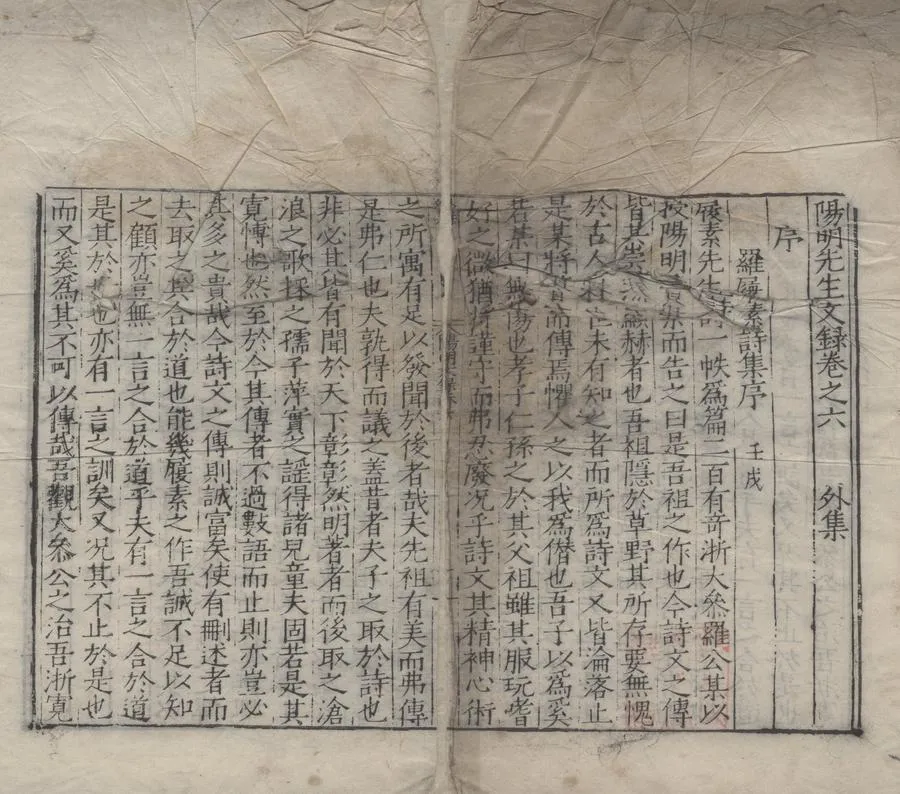 陽明先生文録卷之六　　外集
序
羅履素詩集序　壬戌
履素先生詩一帙爲篇二百有奇浙大叅羅公某以
授陽明某而告之曰是吾祖之作也今詩文之傳
皆其崇然顯赫者也吾祖隱於草野其所存要無愧
於古人然世未有知之者而所爲詩文又皆淪落止
是某將旹而傳焉懼人之以我爲僣也吾子以爲奚
若某曰無傷也孝子仁孫之於其父祖雖其服玩嗜
好之微猶將謹守而弗忍廢况乎詩文其精神心術
之所寓有足以發聞於後者哉夫先祖有美而弗傳
是弗仁也夫孰得而議之盖昔者夫子之取於詩也
非必其皆有聞於天下彰彰然明著者而後取之滄
浪之歌採之孺子萍實之謡得諸兒童夫固若是其
寛愽也然至於今其傳者不過數語而止則亦豈必
其多之貴哉今詩文之傳則誠富矣使有刪述者而
去取之其合於道也能幾履素之作吾誠不足以知
之顧亦豈無一言之合於道乎夫有一言之合於道
是其於也亦有一言之訓矣又况其不止於是也
而又奚爲其不可以傳哉吾觀大叅公之治吾浙寛